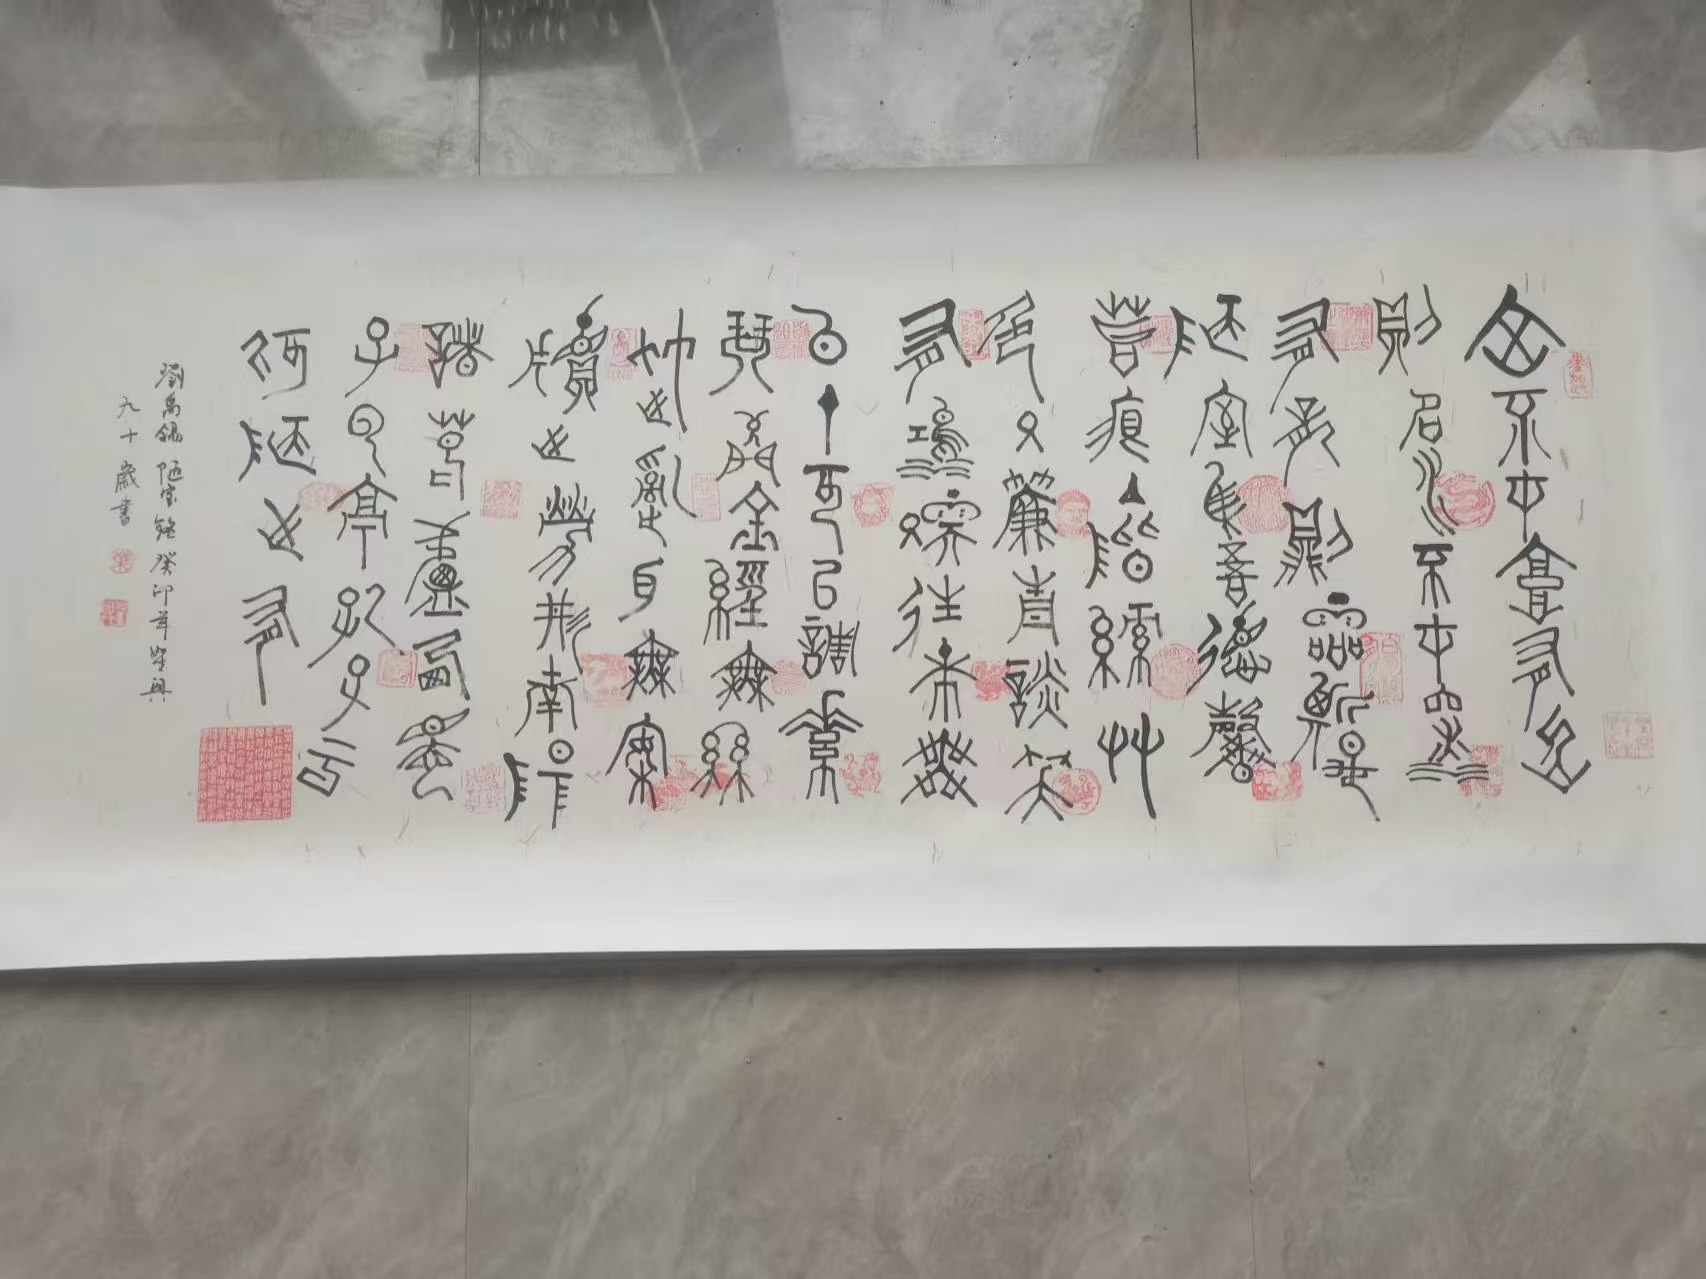 山不在高有仙
則名水不在深
有龍則靈斯是
陋室惟吾德馨
苔痕上階綠艸
色入簾青談笑
有鴻儒往來無
白丁可以調素
琴閱金經無絲
竹之亂耳無案
牘之勞形南陽
諸葛廬西蜀
子云亭孔子云
何陋之有
劉禹錫 陋室銘 癸卯年
九十歲書